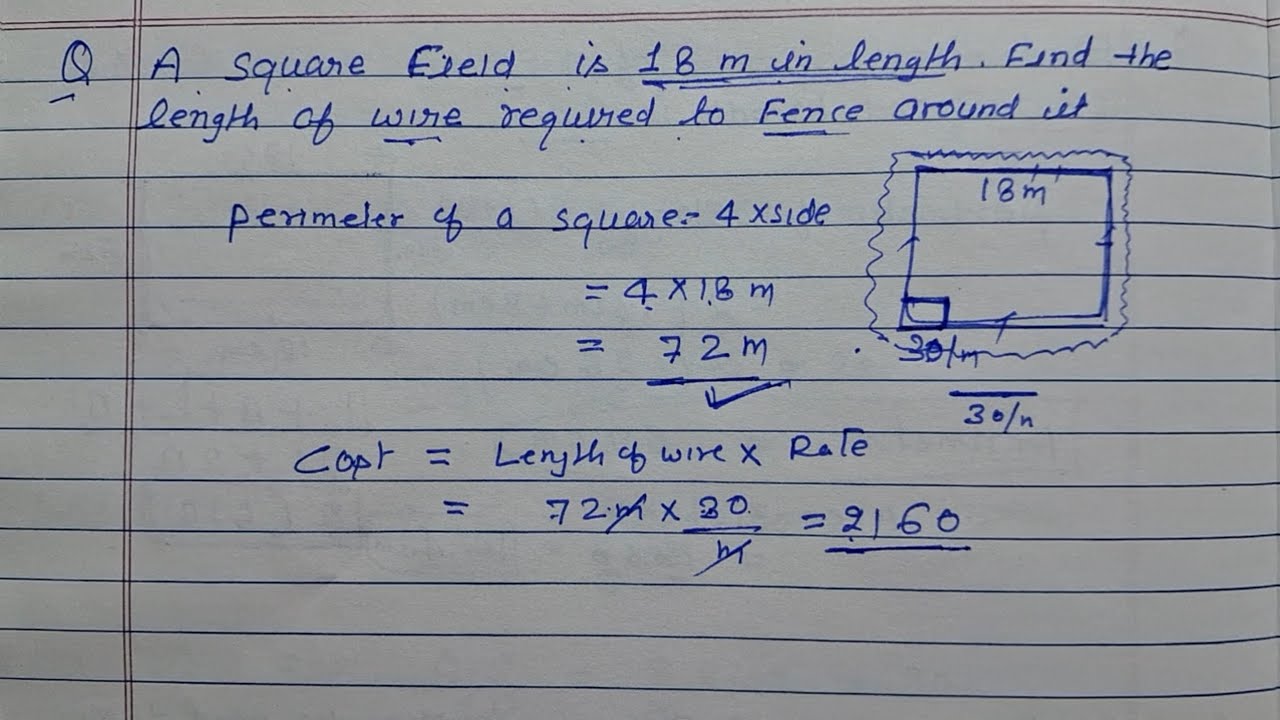 Q A square Field is 18 m in length. Find the
length of wire required to Fence around it
18m
perimeter of a square = 4 × side
= 4 × 18 m
= 72 m
30/m
30/m
Cost = Length of wire × Rate
= 72 m × 30/m = 2160